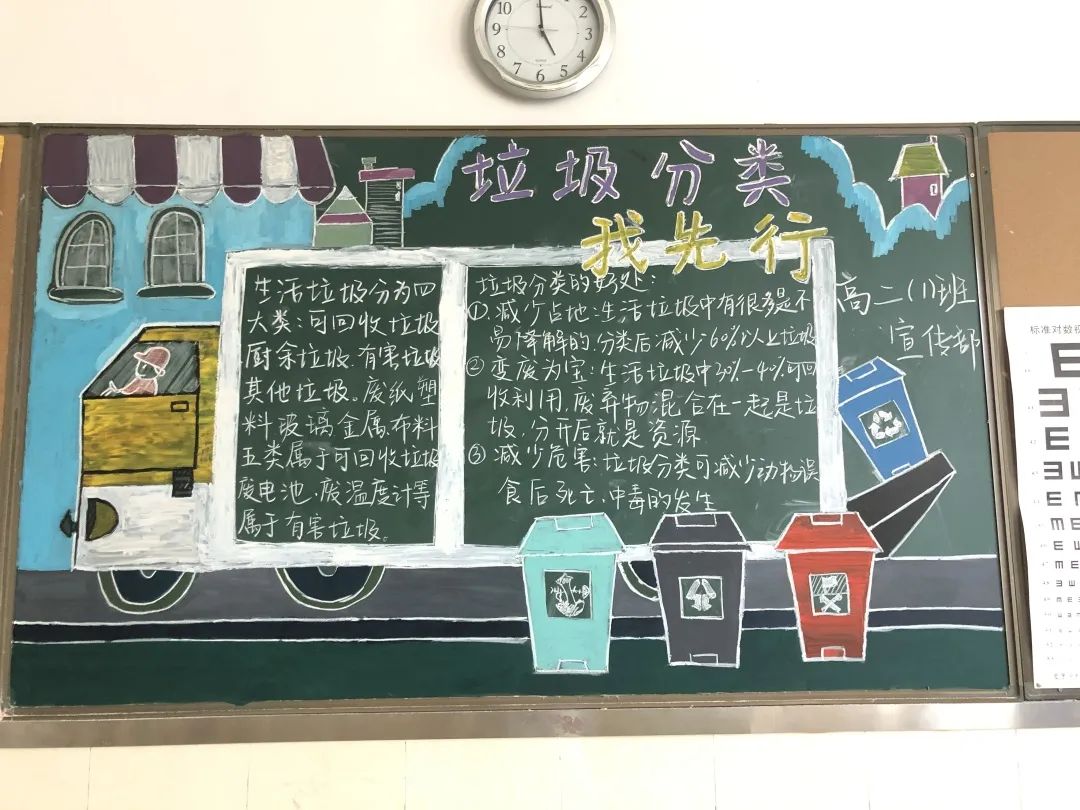 10
12
1
2
9
3
8
4
7
6
5
垃圾分类
我先行
高二(1)班
宣传部
生活垃圾分为四
大类:可回收垃圾
厨余垃圾.有害垃圾
其他垃圾。废纸.塑
料.玻璃.金属.布料
五类属于可回收垃圾
废电池.废温度计等
属于有害垃圾。
垃圾分类的好处:
①.减少占地:生活垃圾中有很多是不
易降解的.分类后.减少60%以上垃圾
② 变废为宝:生活垃圾中30%-40%可回
收利用.废弃物混合在一起是垃
圾,分开后就是资源
③ 减少危害:垃圾分类可减少动物误
食后死亡,中毒的发生
标准对数视
E